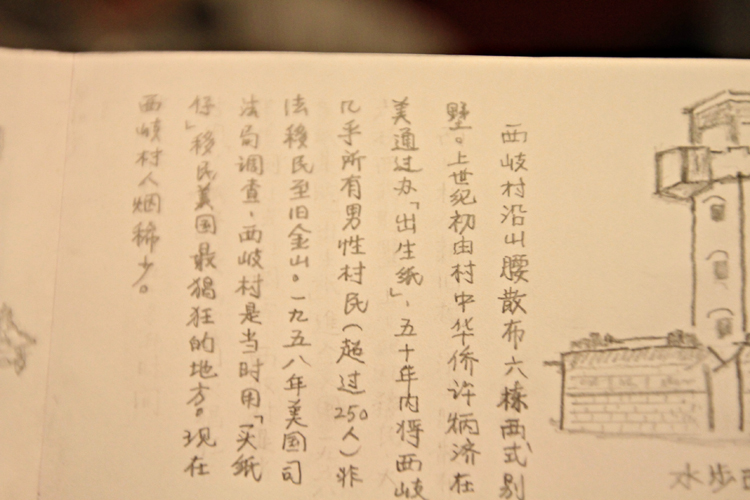 西岐村沿山腰散布六栋西式别
墅。上世纪初由村中华侨许炳济在
美通过办「出生纸」，五十年内将西岐
几乎所有男性村民（超过250人）非
法移民至旧金山。一九五八年美国司
法局调查，西岐村是当时用「买纸
仔」移民美国最猖狂的地方。现在
西岐村人烟稀少。
水步